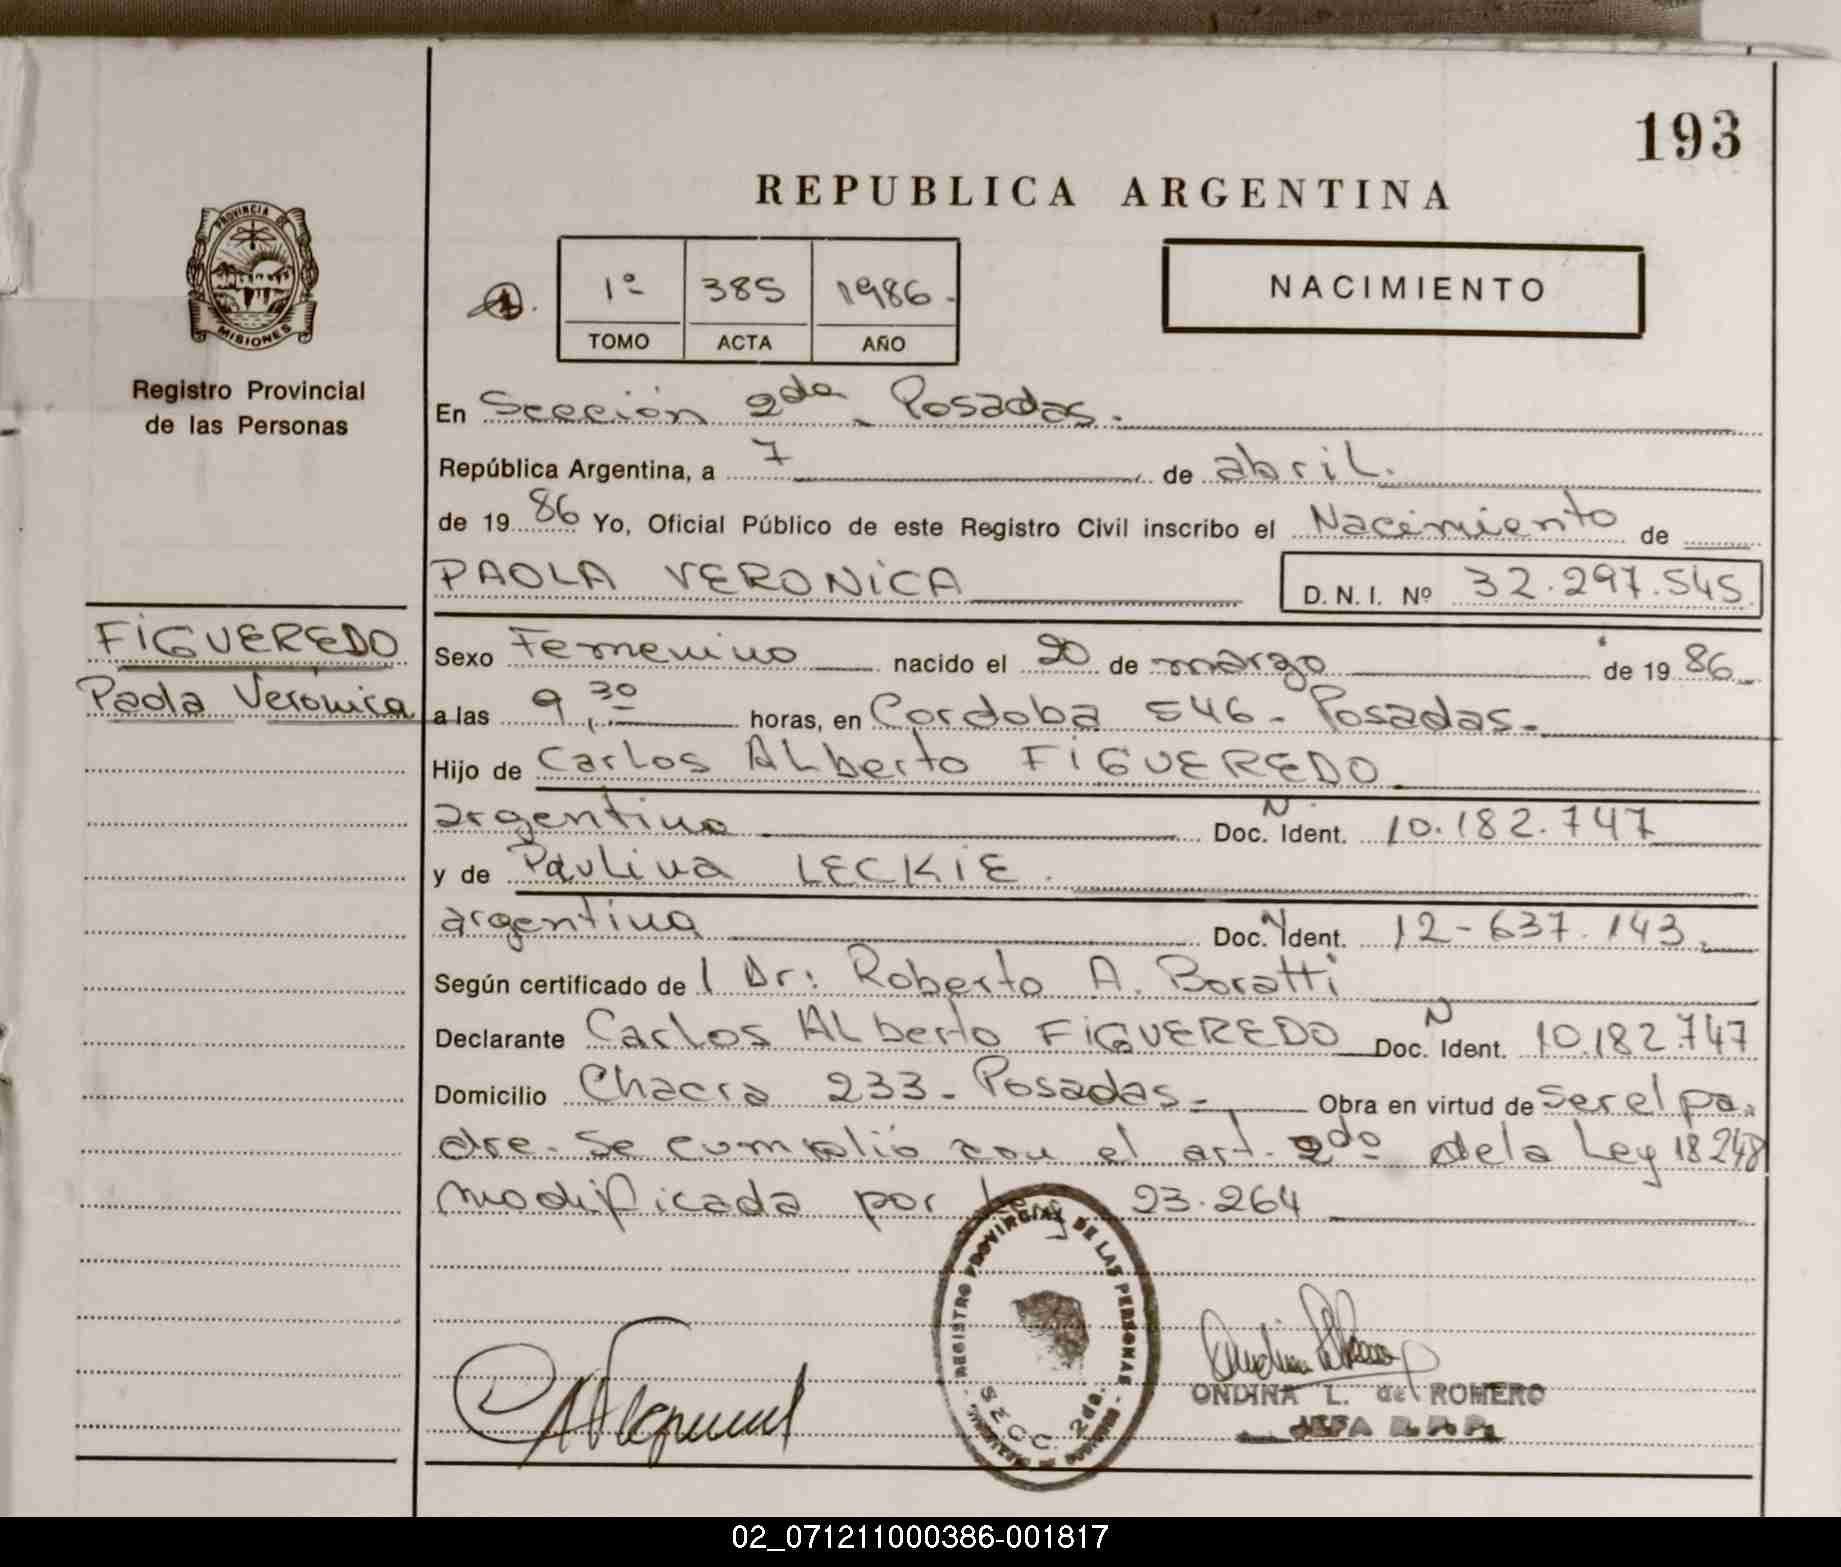 193
REPUBLICA ARGENTINA
PROVINCIA DE
MISIONES
Registro Provincial
de las Personas
1º 385 1986.
TOMO ACTA AÑO
NACIMIENTO
En Sección 2da Posadas.
República Argentina, a 7 de abril.
de 19 86 Yo, Oficial Público de este Registro Civil inscribo el Nacimiento de
PAOLA VERONICA D. N. I. Nº 32.297.545
FIGUEREDO
Paola Verónica
Sexo Femenino nacido el 20 de marzo de 19 86
a las 9,30 horas, en Cordoba 546 - Posadas.
Hijo de Carlos Alberto FIGUEREDO
argentino Doc. N. Ident. 10.182.747
y de Paulina LECKIE.
argentina Doc. N Ident. 12-637.143.
Según certificado de l Dr: Roberto A. Boratti
Declarante Carlos Alberto FIGUEREDO Doc. N Ident. 10.182.747
Domicilio Chacra 233 - Posadas - Obra en virtud de ser el pa
dre. Se cumplió con el art. 2do de la Ley 18248
modificada por Ley 23.264
REGISTRO PROVINCIAL DE LAS PERSONAS
SECC. 2da.
ONDINA L. de ROMERO
JEFA R.P.P.
02_071211000386-001817